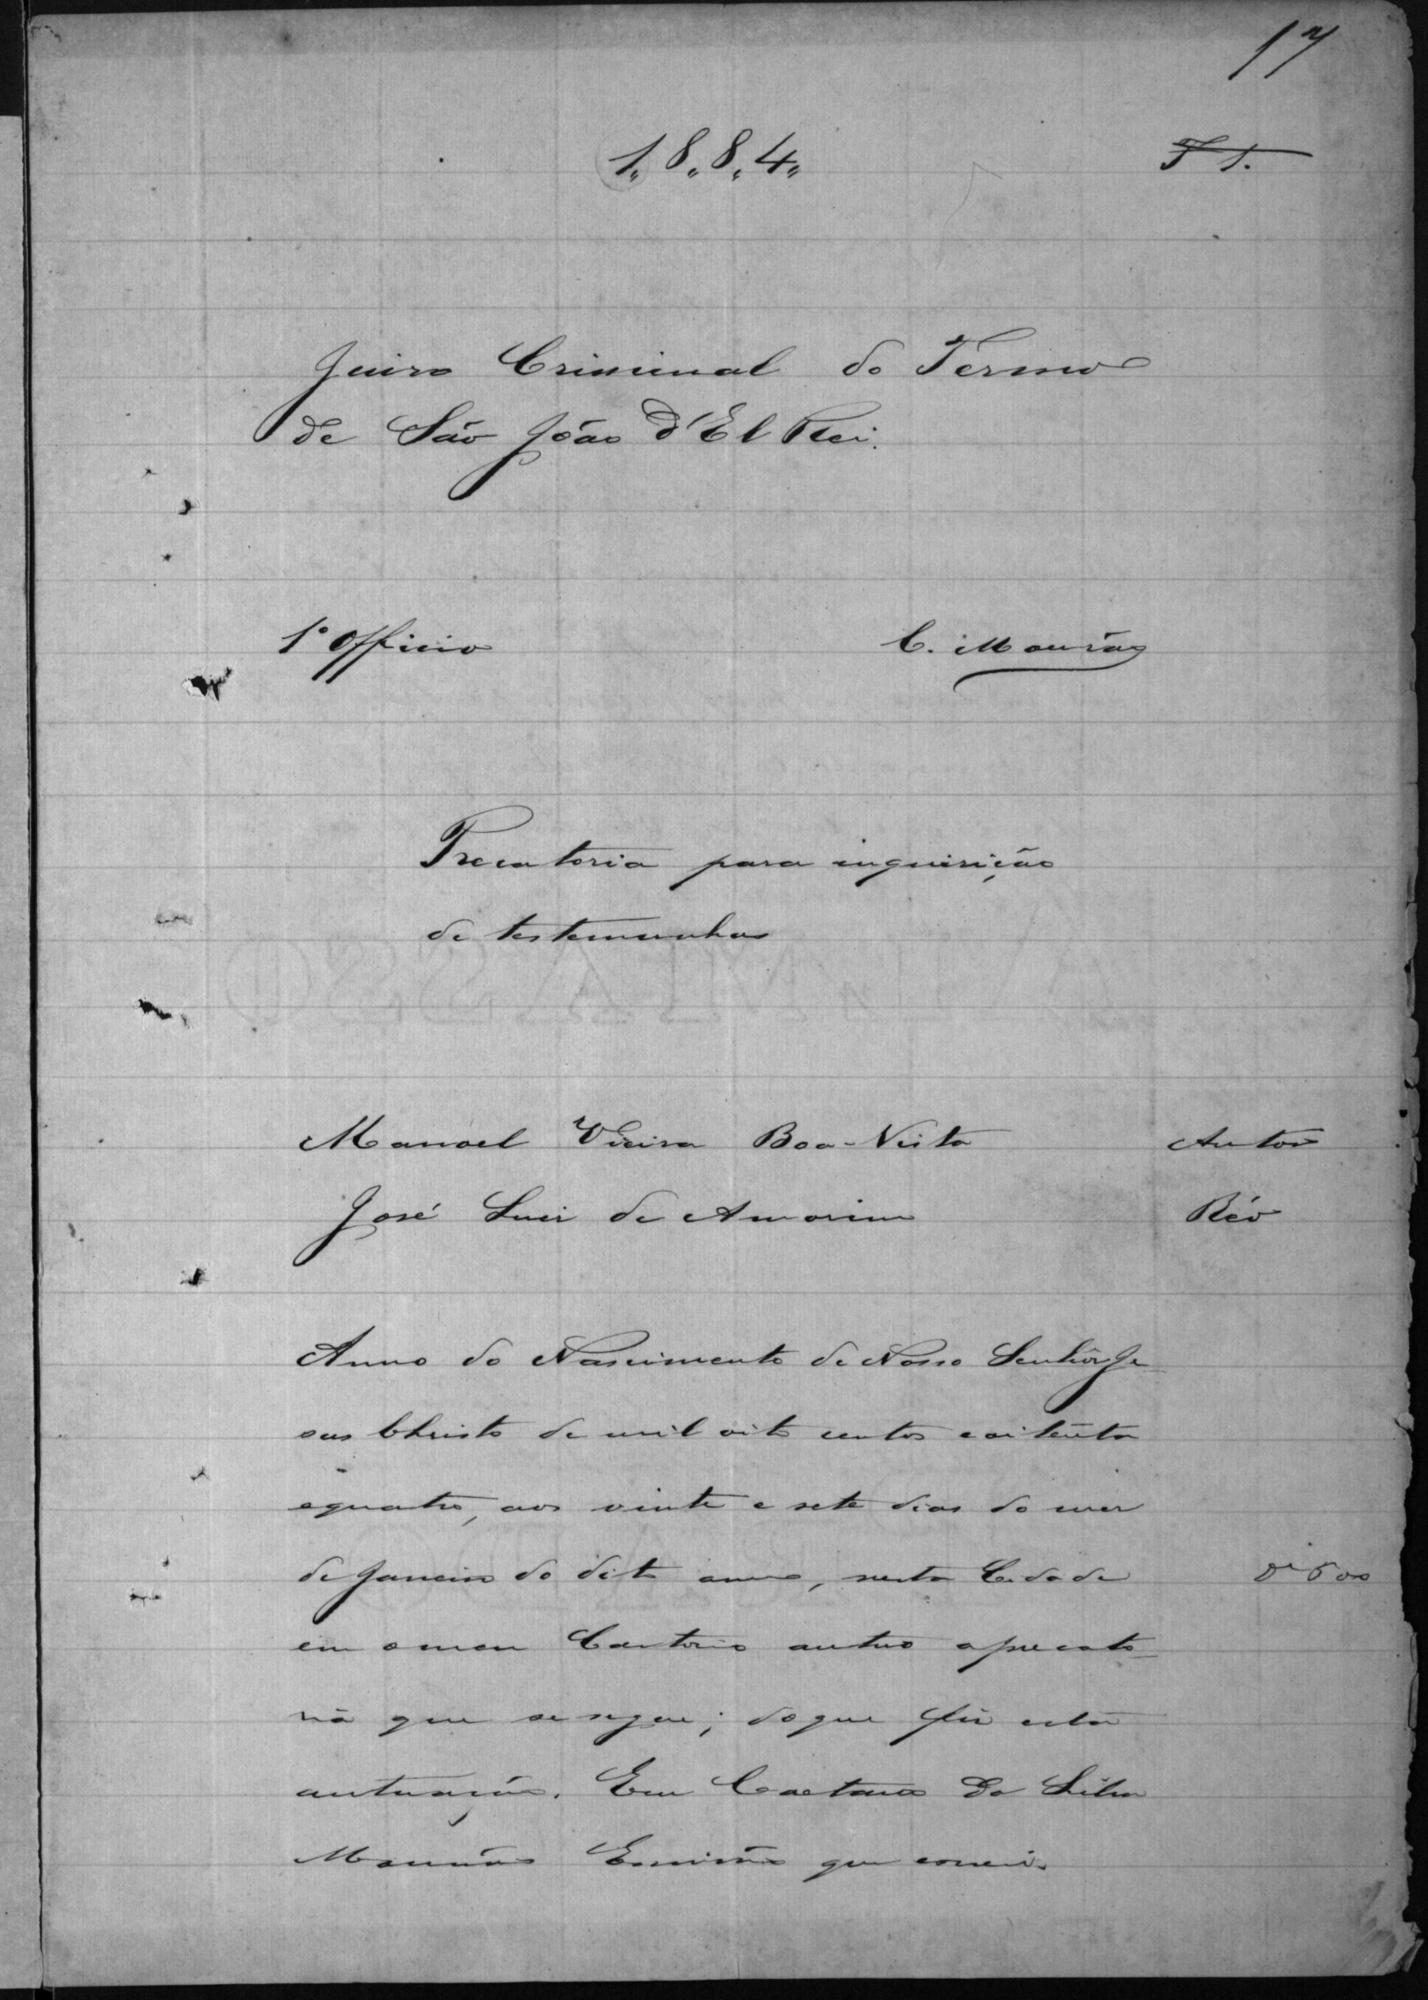 17
1.8.8.4.
F 1.
Juizo Criminal do Termo
de São João d'El Rei.
1º Officio
C. Mourão
Precatoria para inquirição
de testemunhas
Manoel Vieira Boa-Vista Autor
José Luiz de Amorim Réo
Anno do Nascimento de Nosso Senhor Je
sus Christo de mil oito centos e oitenta
e quatro, aos vinte e sete dias do mez
de Janeiro do dito anno, nesta Cidade
em o meu Cartorio autuo a precato-
ria que se segue; do que fiz esta
autuação. Eu Caetano da Silva
Mourão Escrivão que escrevi.